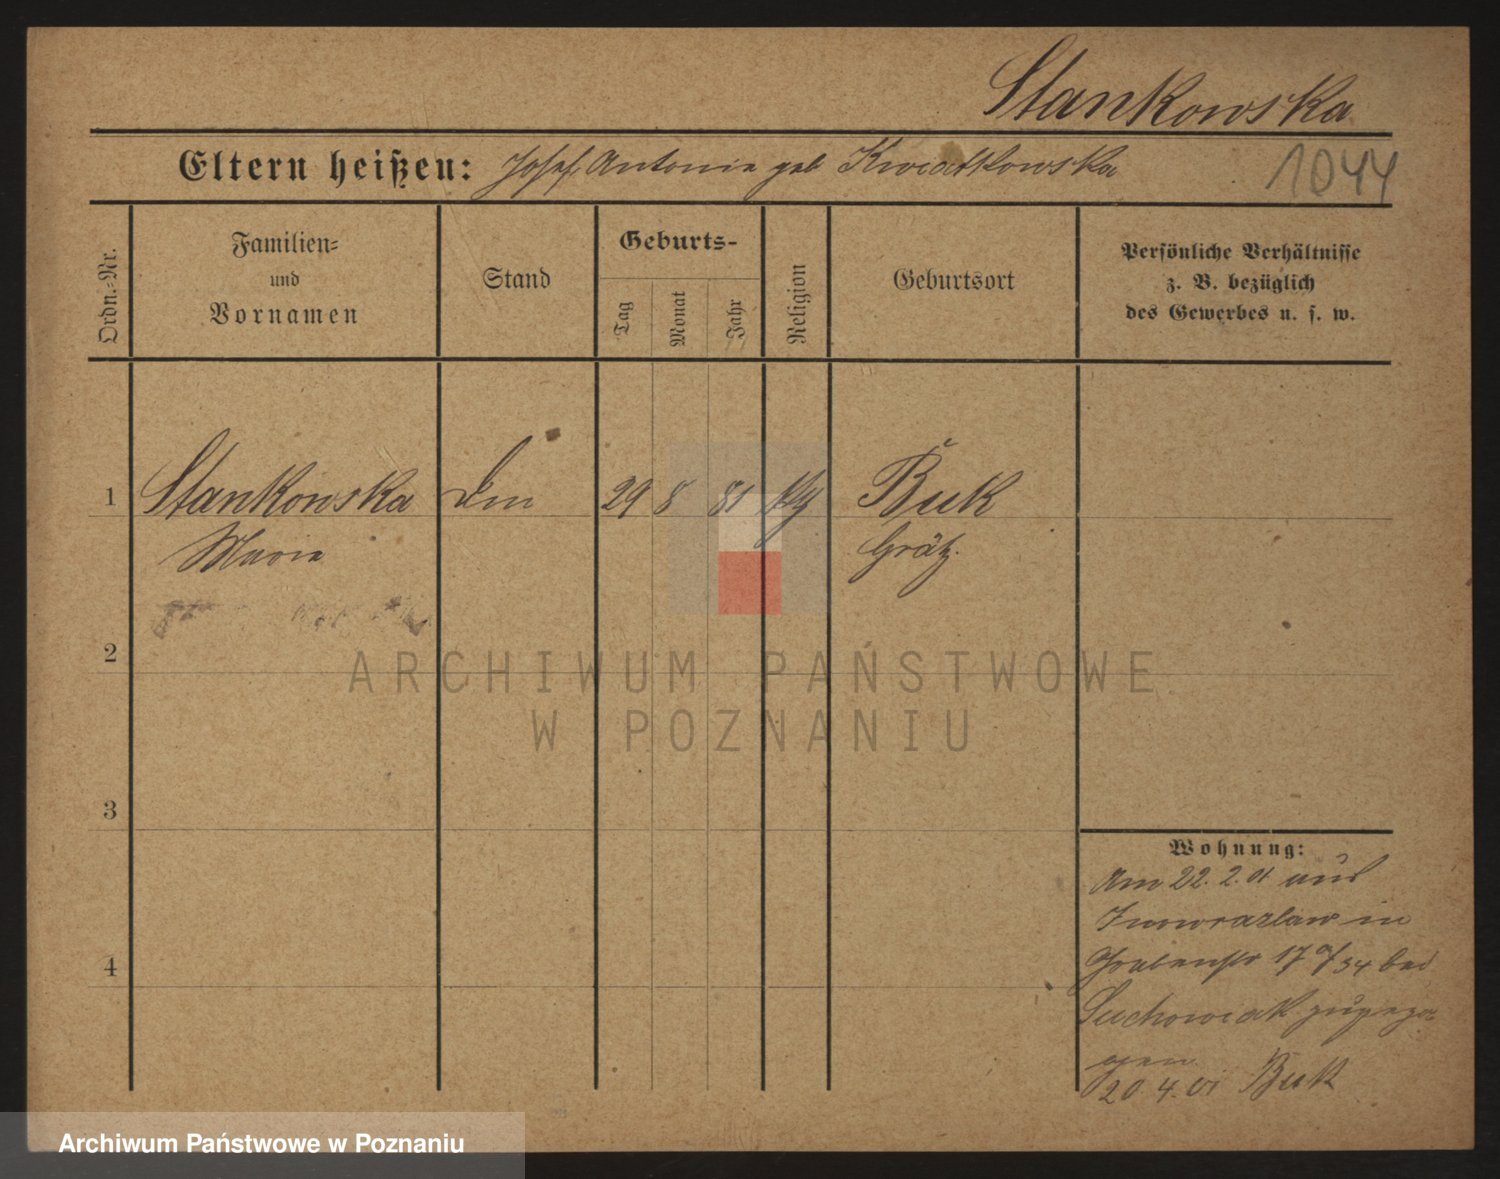 Stankowska
Eltern heißen: Josef, Antonie geb Kwiatkowska
1044
Ordn.-Nr.
Familien-
und
Vornamen
Stand
Geburts-
Tag
Monat
Jahr
Religion
Geburtsort
Persönliche Verhältnisse
z. B. bezüglich
des Gewerbes u. s. w.
1
Stankowska
29 8 81
Buk
Marie
Grätz.
2
ARCHIWUM PAŃSTWOWE
W POZNANIU
3
Wohnung:
Am 22. 2. 01 aus
Inowrazlaw in
4
Grabenstr 17 a/34 bei
Suchowiak zugezo
gen
20. 4. 01 Buk
Archiwum Państwowe w Poznaniu